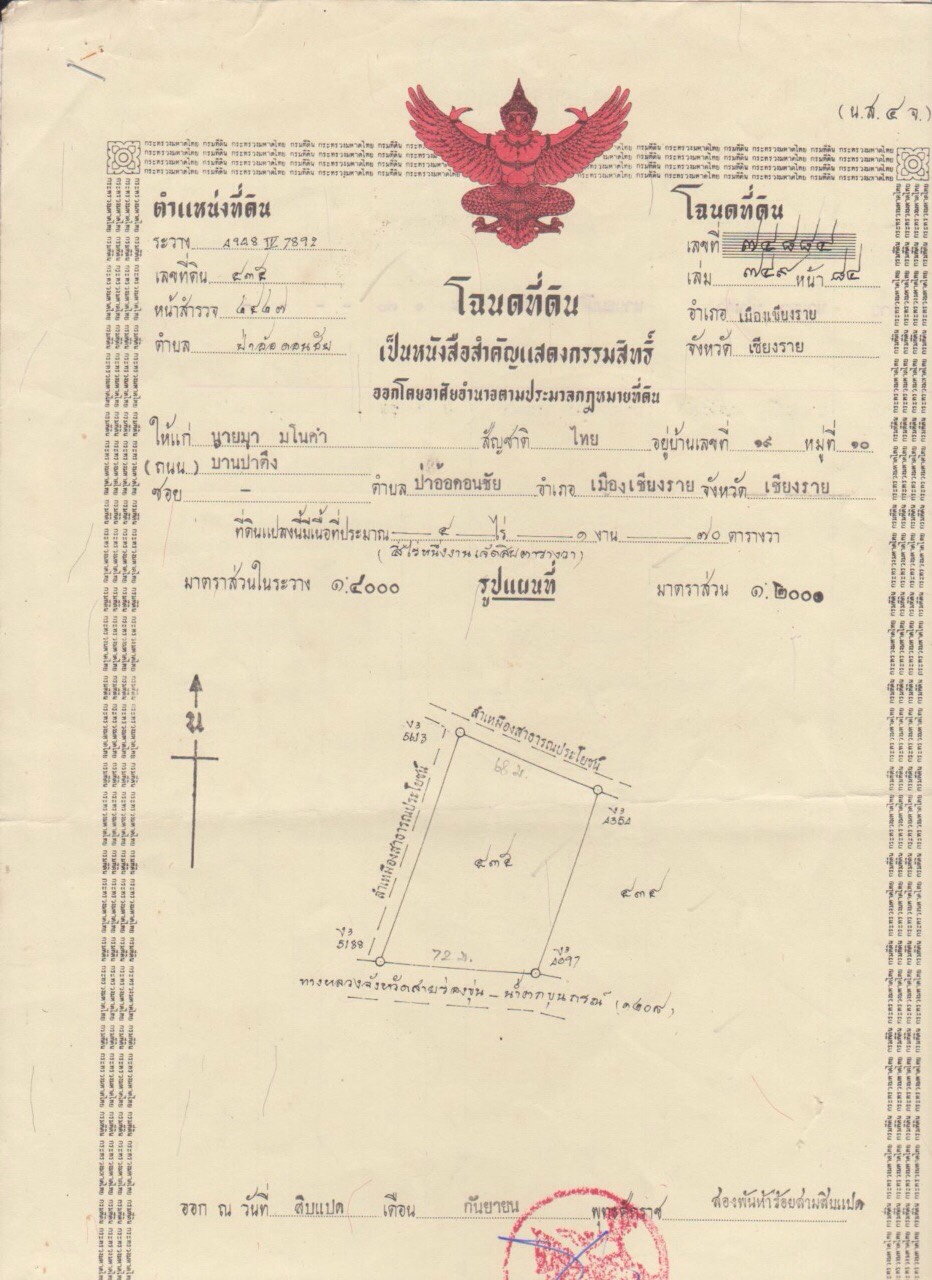 (น.ส. ๔ จ.)
กระทรวงมหาดไทย กรมที่ดิน กระทรวงมหาดไทย กรมที่ดิน
ตำแหน่งที่ดิน
ระวาง 4948 IV 7892
เลขที่ดิน ๔๓๕
หน้าสำรวจ
ตำบล ป่าอ้อดอนชัย
โฉนดที่ดิน
เลขที่ ๗๔๘๘๔
เล่ม ๗๔๙ หน้า ๘๔
อำเภอ เมืองเชียงราย
จังหวัด เชียงราย
โฉนดที่ดิน
เป็นหนังสือสำคัญแสดงกรรมสิทธิ์
ออกโดยอาศัยอำนาจตามประมวลกฎหมายที่ดิน
ให้แก่ นายมา มโนคำ สัญชาติ ไทย อยู่บ้านเลขที่ ๑๙ หมู่ที่ ๑๐
(ถนน) บานปาตึง
ซอย – ตำบล ป่าอ้อดอนชัย อำเภอ เมืองเชียงราย จังหวัด เชียงราย
ที่ดินแปลงนี้มีเนื้อที่ประมาณ ๔ ไร่ ๑ งาน ๗๐ ตารางวา
(สี่ไร่หนึ่งงานเจ็ดสิบตารางวา)
มาตราส่วนในระวาง ๑:๔๐๐๐ รูปแผนที่ มาตราส่วน ๑:๒๐๐๐
น
ลำเหมืองสาธารณประโยชน์
68 ม.
ลำเหมืองสาธารณประโยชน์
๔๓๕
๔๓๔
5188
72 ม.
ทางหลวงจังหวัดสายร่องขุ่น – น้ำตกขุนกรณ์ (๑๒๐๘)
ออก ณ วันที่ สิบแปด เดือน กันยายน พุทธศักราช สองพันห้าร้อยสามสิบแปด